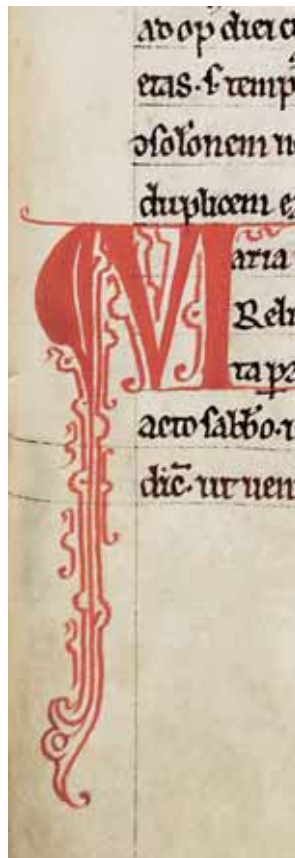 ad op diei
etas. s. temp
ɔsolonem n
duplicem ex
Maria
Reli
ta pa
acto sabbo.
dic̄. ut uen